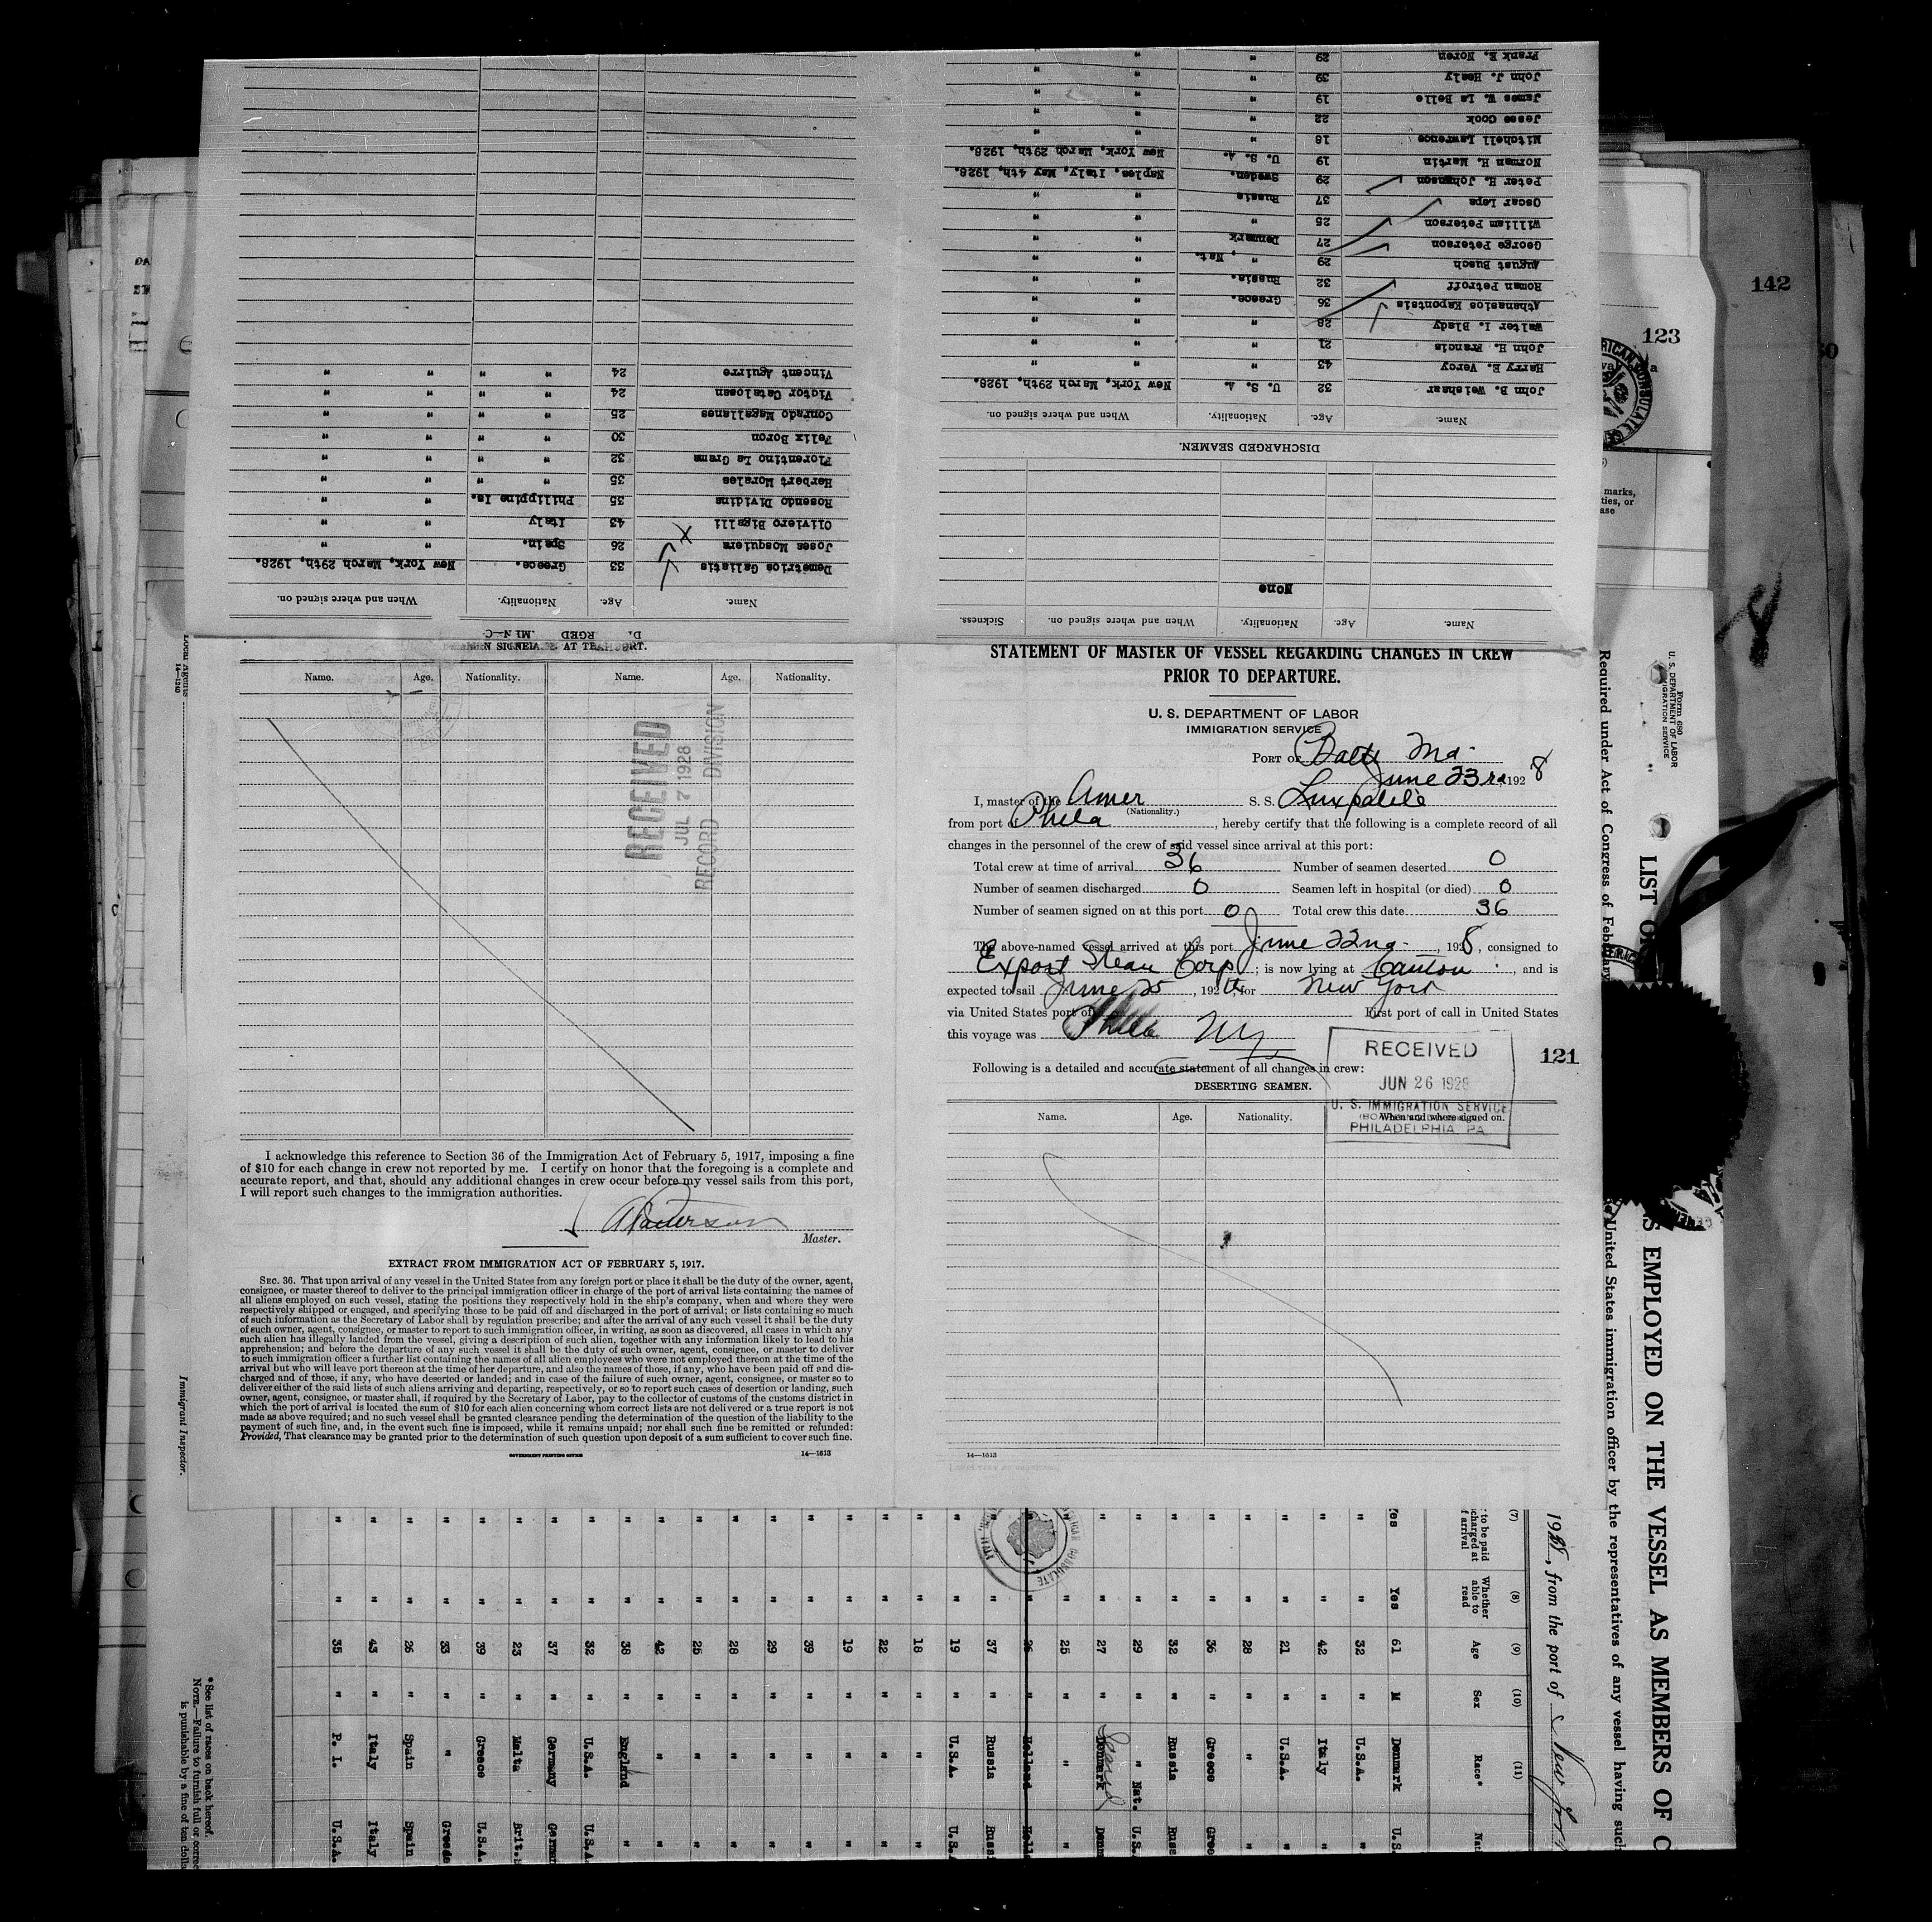 STATEMENT OF MASTER OF VESSEL REGARDING CHANGES IN CREW
PRIOR TO DEPARTURE.
U. S. DEPARTMENT OF LABOR
IMMIGRATION SERVICE
PORT OF Balto Md.
June 23rd, 1928
I, master of the Amer S. S. Luxpalile
(Nationality.)
from port of Phila, hereby certify that the following is a complete record of all
changes in the personnel of the crew of said vessel since arrival at this port:
Total crew at time of arrival 36 Number of seamen deserted 0
Number of seamen discharged 0 Seamen left in hospital (or died) 0
Number of seamen signed on at this port 0 Total crew this date 36
The above-named vessel arrived at this port June 22nd, 1928, consigned to
Export Steam Corp; is now lying at Canton, and is
expected to sail June 25, 192 for New York
via United States port of First port of call in United States
this voyage was NY
Following is a detailed and accurate statement of all changes in crew:
DESERTING SEAMEN.
Name. Age. Nationality. When and where signed on.
RECEIVED
JUN 26 1928
U. S. IMMIGRATION SERVICE
PHILADELPHIA PA
121
14—1613
Name. Age. Nationality. Name. Age. Nationality.
RECEIVED
JUL 7 1928
RECORD DIVISION
I acknowledge this reference to Section 36 of the Immigration Act of February 5, 1917, imposing a fine
of $10 for each change in crew not reported by me. I certify on honor that the foregoing is a complete and
accurate report, and that, should any additional changes in crew occur before my vessel sails from this port,
I will report such changes to the immigration authorities.
Master.
EXTRACT FROM IMMIGRATION ACT OF FEBRUARY 5, 1917.
SEC. 36. That upon arrival of any vessel in the United States from any foreign port or place it shall be the duty of the owner, agent,
consignee, or master thereof to deliver to the principal immigration officer in charge of the port of arrival lists containing the names of
all aliens employed on such vessel, stating the positions they respectively hold in the ship's company, when and where they were
respectively shipped or engaged, and specifying those to be paid off and discharged in the port of arrival; or lists containing so much
of such information as the Secretary of Labor shall by regulation prescribe; and after the arrival of any such vessel it shall be the duty
of such owner, agent, consignee, or master to report to such immigration officer, in writing, as soon as discovered, all cases in which any
such alien has illegally landed from the vessel, giving a description of such alien, together with any information likely to lead to his
apprehension; and before the departure of any such vessel it shall be the duty of such owner, agent, consignee, or master to deliver
to such immigration officer a further list containing the names of all alien employees who were not employed thereon at the time of the
arrival but who will leave port thereon at the time of her departure, and also the names of those, if any, who have been paid off and dis-
charged and of those, if any, who have deserted or landed; and in case of the failure of such owner, agent, consignee, or master so to
deliver either of the said lists of such aliens arriving and departing, respectively, or so to report such cases of desertion or landing, such
owner, agent, consignee, or master shall, if required by the Secretary of Labor, pay to the collector of customs of the customs district in
which the port of arrival is located the sum of $10 for each alien concerning whom correct lists are not delivered or a true report is not
made as above required; and no such vessel shall be granted clearance pending the determination of the question of the liability to the
payment of such fine, and, in the event such fine is imposed, while it remains unpaid; nor shall such fine be remitted or refunded:
Provided, That clearance may be granted prior to the determination of such question upon deposit of a sum sufficient to cover such fine.
GOVERNMENT PRINTING OFFICE
14—1613
Name. Age. Nationality. When and where signed on. Sickness.
None
DISCHARGED SEAMEN.
Name. Age. Nationality. When and where signed on.
John B. Weishaar 32 U. S. A. New York, March 29th, 1928.
Harry E. Vercy 43 " " "
John H. Francis 21 " " "
Walter I. Blady 28 " " "
Athanasios Kapontsis 36 Greece. " "
Roman Petroff 32 Russia. " "
August Busch 29 ", Nat. " "
George Peterson 27 Denmark " "
William Peterson 25 " " "
Oscar Leps 37 Russia " "
Peter H. Johnson 29 Sweden. Naples, Italy, May 4th, 1928.
Norman H. Martin 19 U. S. A. New York, March 29th, 1928.
Mitchell Lawrence 18 " " "
Jesse Cook 22 " " "
James W. La Belle 19 " " "
John J. Healy 39 " " "
Frank E. Noren 29 " " "
Name. Age. Nationality. When and where signed on.
Demetrios Galiatis 33 Greece. New York, March 29th, 1928.
Joses Mosquiera 26 Spain. " "
Oliviero Bigalli 43 Italy " "
Rosendo Dividina 35 Philippine Is. " "
Herbert Morales 35 " " " "
Florentino La Grama 32 " " " "
Felix Boron 30 " " " "
Conrado Magallanes 25 " " " "
Victor Catalosan 24 " " " "
Vincent Aguirre 24 " " " "
142
123
Form 680
U. S. DEPARTMENT OF LABOR
IMMIGRATION SERVICE
LIST OF
S EMPLOYED ON THE VESSEL AS MEMBERS OF C
Required under Act of Congress of February
United States immigration officer by the representatives of any vessel having such
, from the port of New York
(7) (8) (9) (10) (11)
to be paid
charged at
f arrival
Whether
able to
read
Age
Sex
Race*
Yes Yes 61 M Denmark U.S.
" " 32 " U.S.A. "
" " 42 " Italy "
" " 21 " U.S.A. "
" " 28 " " "
" " 36 " Greece Gre
" " 32 " Russia Russ
" " 29 " " Nat. U.S.
" " 27 " Denmark Denm
" " 25 " " "
" " 37 " Russia Russi
" " 19 " U.S.A. U.S.A
" " 18 " " "
" " 22 " " "
" " 19 " " "
" " 39 " " "
" " 29 " " "
" " 28 " " "
" " 25 " " "
" " 42 " " "
" " 38 " England "
" " 32 " U.S.A. U.S.A.
" " 37 " Germany German
" " 23 " Malta Brit.
" " 39 " Greece U.S.A.
" " 33 " " Greece
" " 26 " Spain Spain
" " 43 " Italy Italy
" " 35 " P. I. U.S.A.
*See list of races on back hereof.
NOTE.—Failure to furnish full or correc
is punishable by a fine of ten dolla
Immigrant Inspector.
Local Agents
14—1240